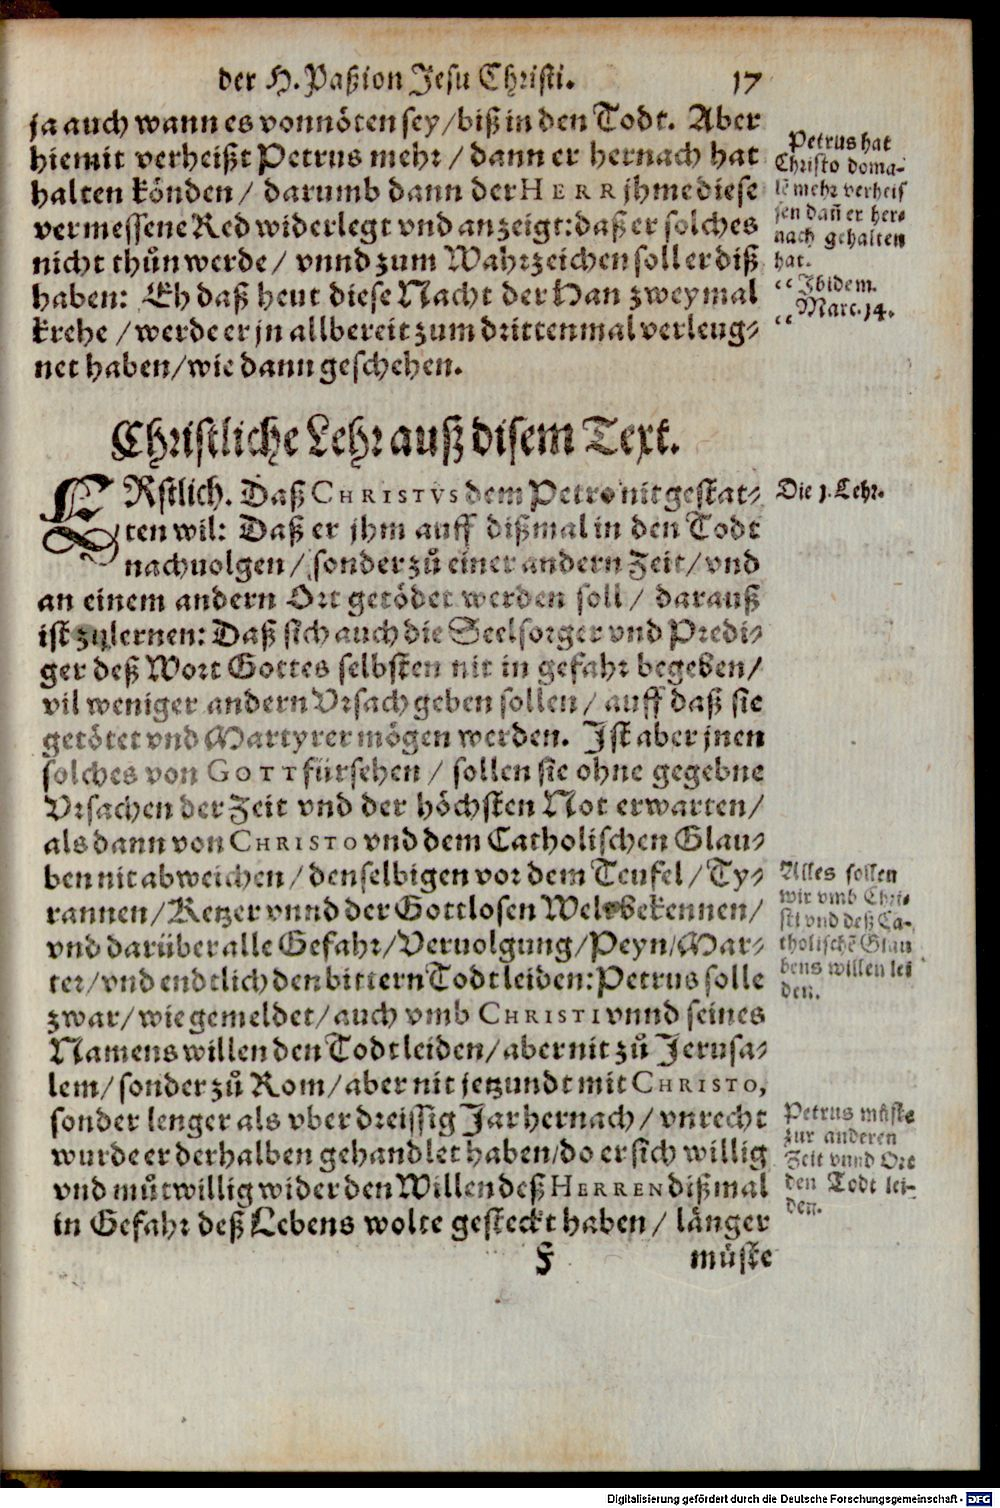 der H. Paßion Jesu Christi. 17
ja auch wann es vonnöten sey/ biß in den Todt. Aber
hiemit verheißt Petrus mehr/ dann er hernach hat
halten könden/ darumb dann der HERR jhme diese
vermessene Red widerlegt vnd anzeigt: daß er solches
nicht thůn werde/ vnnd zum Wahrzeichen soll er diß
haben: Eh daß heut diese Nacht der Han zweymal
krehe/ werde er jn allbereit zum drittenmal verleug-
net haben/ wie dann geschehen.
Petrus hat
Christo doma-
lē mehr verheis
sen dañ er her-
nach gehalten
hat.
“ Ibidem.
“ Marc. 14.
Christliche Lehr auß disem Text.
ERstlich. Daß CHRISTVS dem Petro nit gestat-
ten wil: Daß er jhm auff dißmal in den Todt
nachuolgen/ sonder zů einer andern Zeit/ vnd
an einem andern Ort getödet werden soll/ darauß
ist zulernen: Daß sich auch die Seelsorger vnd Predi-
ger deß Wort Gottes selbsten nit in gefahr begeben/
vil weniger andern Vrsach geben sollen/ auff daß sie
getötet vnd Martyrer mögen werden. Ist aber jnen
solches von GOTT fürsehen/ sollen sie ohne gegebne
Vrsachen der Zeit vnd der höchsten Not erwarten/
als dann von CHRISTO vnd dem Catholischen Glau-
ben nit abweichen/ denselbigen vor dem Teufel/ Ty-
rannen/ Ketzer vnnd der Gottlosen Welt bekennen/
vnd darüber alle Gefahr/ Veruolgung/ Peyn/ Mar-
ter/ vnd endtlich den bittern Todt leiden: Petrus solle
zwar/ wie gemeldet/ auch vmb CHRISTI vnnd seines
Namens willen den Todt leiden/ aber nit zů Jerusa-
lem/ sonder zů Rom/ aber nit jetzundt mit CHRISTO,
sonder lenger als vber dreissig Jar hernach/ vnrecht
wurde er derhalben gehandlet haben/ do er sich willig
vnd můtwillig wider den Willen deß HERREN dißmal
in Gefahr deß Lebens wolte gesteckt haben/ länger
Die 1. Lehr.
Alles sollen
wir vmb Chri-
sti vnd deß Ca-
tholischē Glau
bens willen lei
den.
Petrus müste
zur anderen
Zeit vnnd Ort
den Todt lei-
den.
F müste
Digitalisierung gefördert durch die Deutsche Forschungsgemeinschaft - DFG